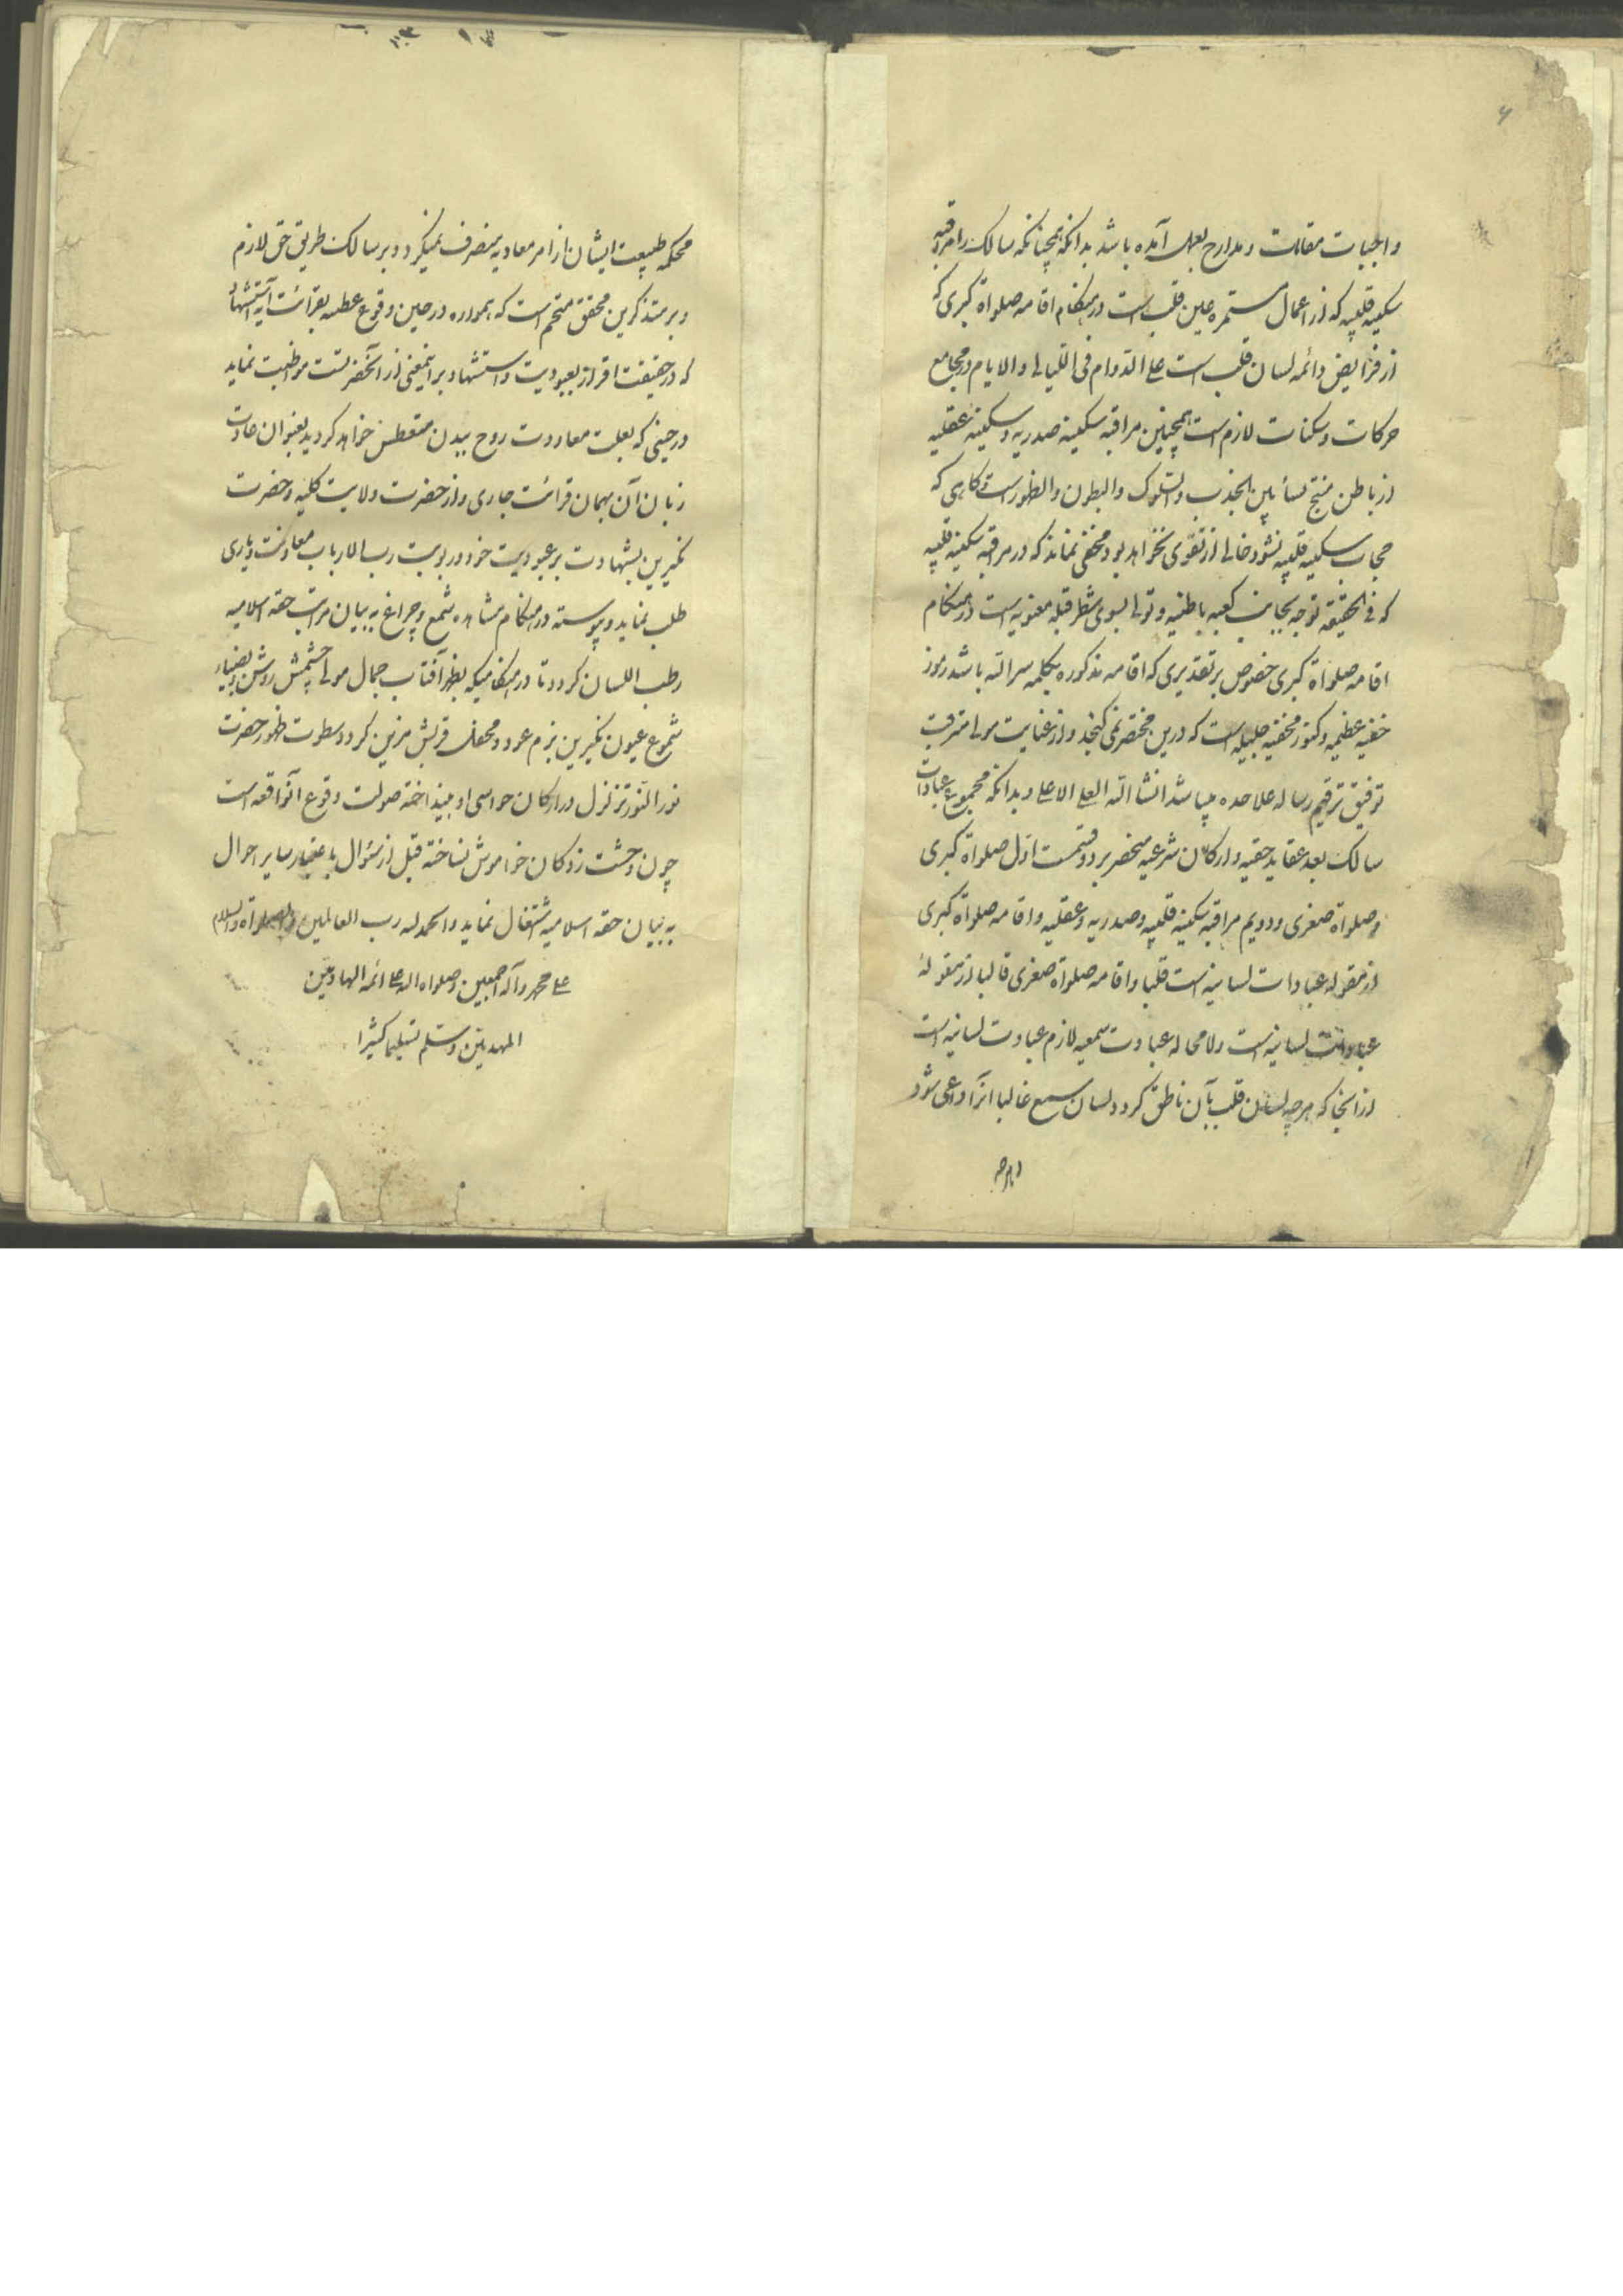 ۶
واجبات مقامات و مدارج بعمل آمده باشد بدانکه همچنانکه سالک را مراقبه
سکینه قلبیه که از اعمال مستمره عین قلب است در هنگام اقامه صلواة کبری که
از فرایض دائمه لسان قلب است علی الدوام فی اللیالی و الایام در مجامع
حرکات و سکنات لازم است همچنین مراقبه سکینه صدریه و سکینه عقلیه
از باطن منتج لسانین الجذب والسلوک والبطون والظهور است و کاهی که
حجاب سکینه قلبیه نشود خالی از تقوی نخواهد بود و مخفی نماند که در مراقبه سکینه قلبیه
که فی الحقیقه توجه بجانب کعبه باطنیه و تولی بسوی شطر قبله معنویه است در هنگام
اقامه صلواة کبری خصوص بر تقدیری که اقامه مذکوره بکلمه سر الله باشد رموز
خفیه عظیمه و کنوز مخفیه جلیله است که درین مختصر نمی کنجد و از عنایت مولی مترقب
توفیق ترقیم رساله علاحده میباشد انشا الله العلی الاعلی و بدانکه مجموع عبادات
سالک بعد عقاید حقیه و ارکان شرعیه منحصر بر دو قسمت اول صلواة کبری
و صلواة صغری و دویم مراقبه سکینه قلبیه و صدریه و عقلیه و اقامه صلواة کبری
از مقوله عبادات لسانیه است قلبا و اقامه صلواة صغری قالبا از مقوله
عبادات لسانیه است و لا محاله عبادت سمعیه لازم عبادت لسانیه است
از انجا که هر چه لسان قلب بآن ناطق کردد لسان سمع غالبا انرا واعی شود
محکمه طبیعت ایشان از امر معادیه منصرف نمیکردد و بر سالک طریق حق لازم
و بر متذکرین محقق متحتم است که همواره در حین وقوع عطسه بقرائت آیه استشهاد
که در حقیقت اقرار بعبودیت و استشهاد بر اینمعنی از آنحضرتست مواظبت نماید
در حینی که بعلت معاودت روح ببدن متعطس خواهد کردید بعنوان عادت
زبان آن بهمان قرائت جاری و از حضرت ولایت کلیه و حضرت
نکیرین بشهادت بر عبودیت خود و ربوبیت رب الارباب معاونت و یاری
طلب نماید و پیوسته در هنگام مشاهده شمع و چراغ به بیان مراتب حقه اسلامیه
رطب اللسان کردد تا در هنکامیکه بظهر آفتاب جمال مولی چشمش روشن و بضیاء
شموع عیون نکیرین بزم عود و محفل قربش مزین کردد سطوت ظهور حضرت
نور النور تزلزل در ارکان حواسی او نینداخته صولت وقوع آنواقعه است
چون وحشت زدکان خواموش نساخته قبل از سئوال باعتبار سایر احوال
به بیان حقه اسلامیه اشتغال نماید والحمد لله رب العالمین والصلواة والسلام
علی محمد وآله اجمعین وصلواة الله علی ائمه الهادیین
المهدیین وسلم تسلیما کثیرا